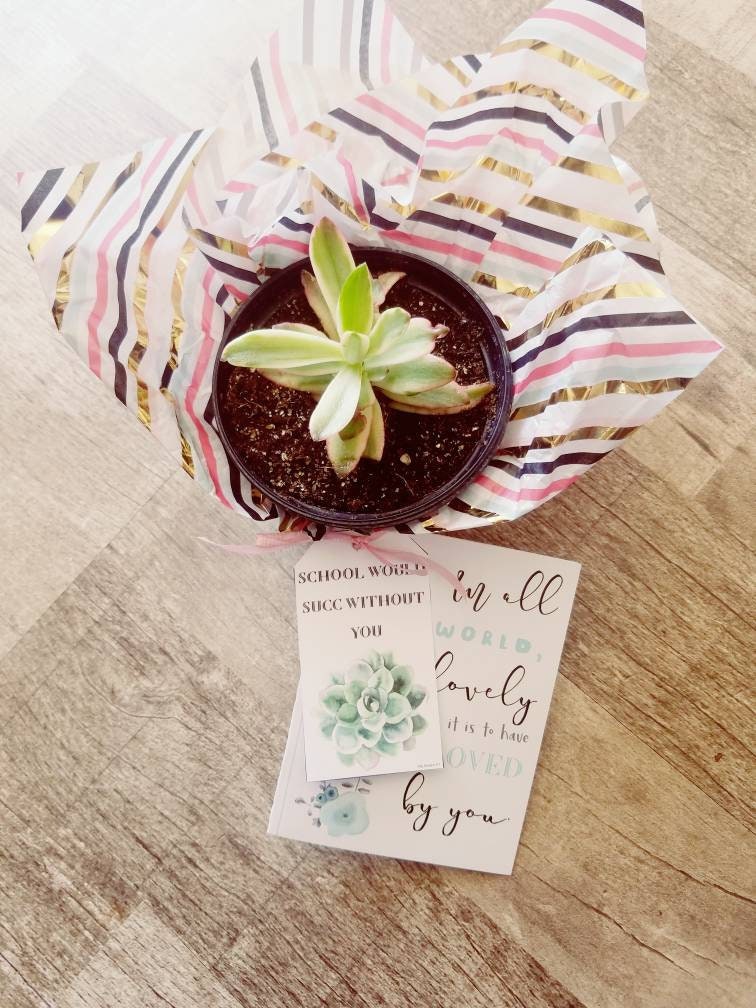 SCHOOL WOULD
SUCC WITHOUT
YOU
in all
WORLD,
lovely
it is to have
OVED
by you.